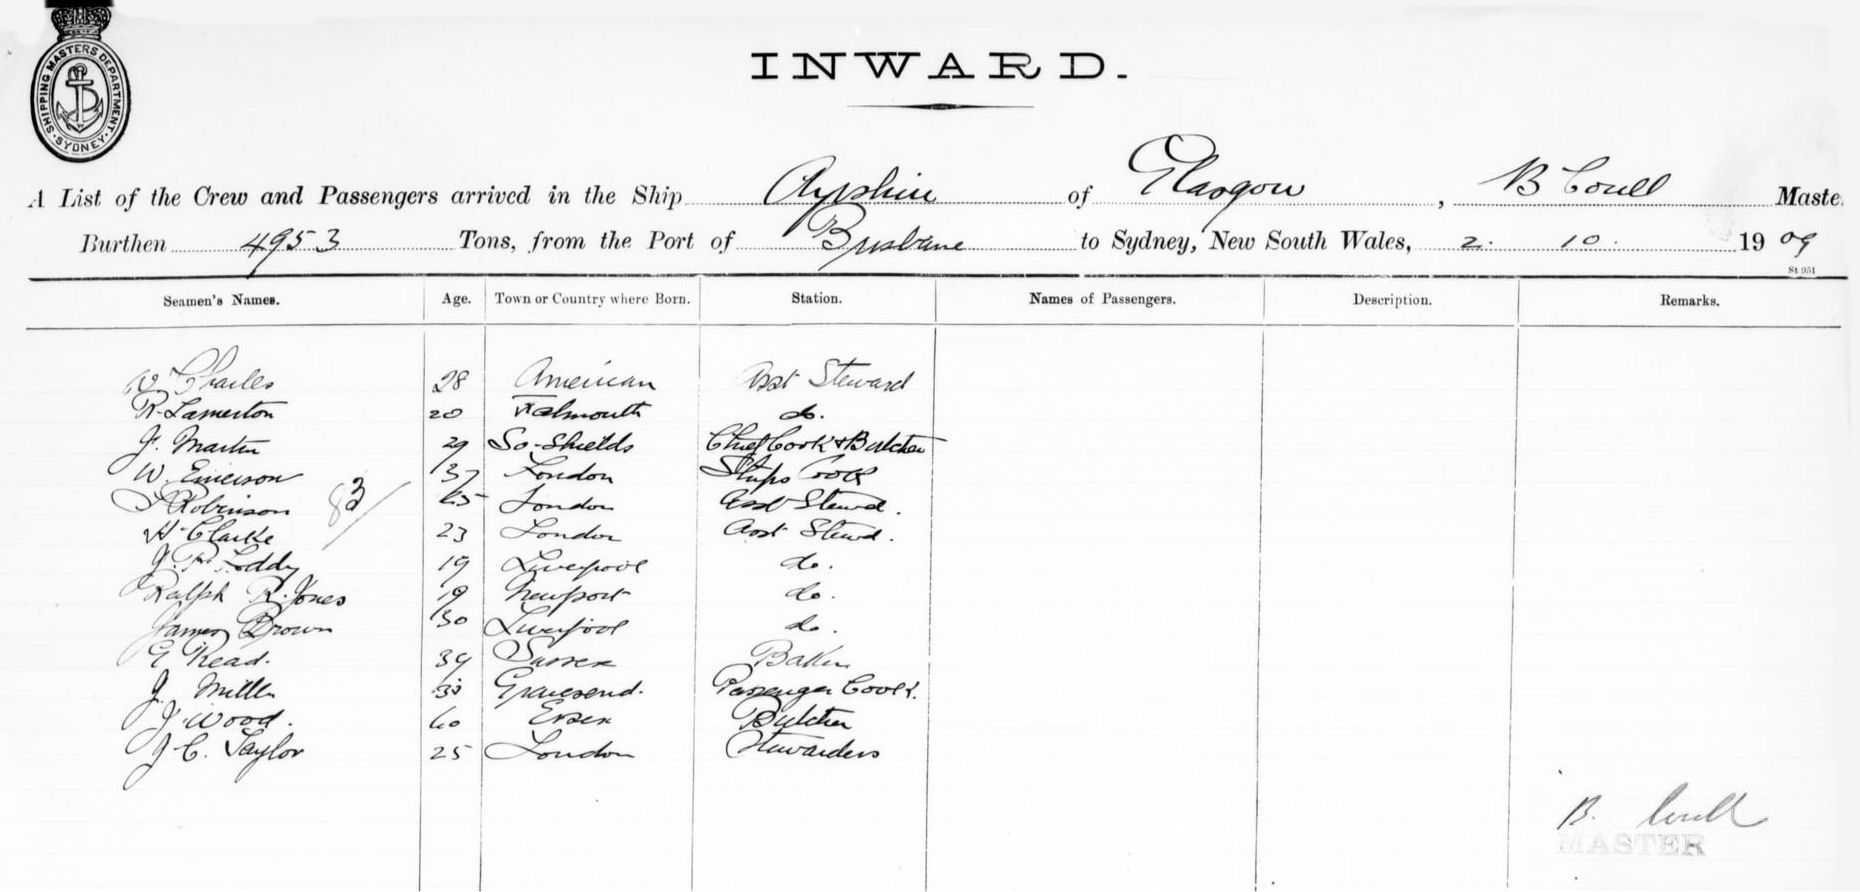 SHIPPING MASTERS DEPARTMENT. SYDNEY
INWARD.
A List of the Crew and Passengers arrived in the Ship Ayrshire of Glasgow, B Coull Maste
Burthen 4953 Tons, from the Port of Brisbane to Sydney, New South Wales, 2. 10. 1909
St 951
Seamen's Names. Age. Town or Country where Born. Station. Names of Passengers. Description. Remarks.
W Charles 28 American Asst Steward
R. Lamerton 20 Falmouth do.
J. Martin 29 So. Shields Chief Cook & Butcher
W. Emerson 37 London Ships Cook
Robinson London Asst Stewd.
83/
H Clarke 23 London Asst Stewd.
J. 19 Liverpool do.
Ralph R. Jones 19 Newport do.
James Brown 30 Liverpool do.
G Read. 39 Sussex Baker
J. Miller Gravesend. Passenger Cook.
J. Wood. 60 Essex Butcher
J C. Taylor 25 London Stewardess
B. Coull
MASTER